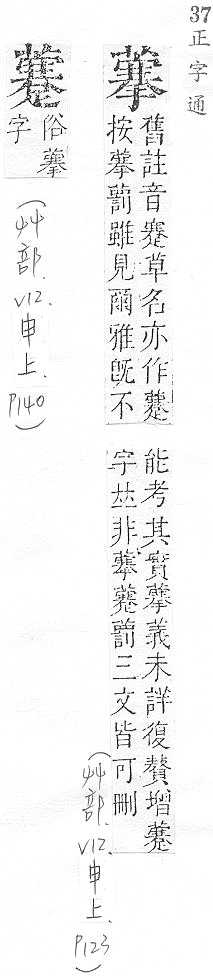 37 正字通
舊註音蹇草名亦作
按雖見爾雅旣不
能考其實義未詳復贅增
字𠀤非三文皆可刪
(艸部.V12.申上.P123)
俗
字
(艸部.V12.申上.P140)